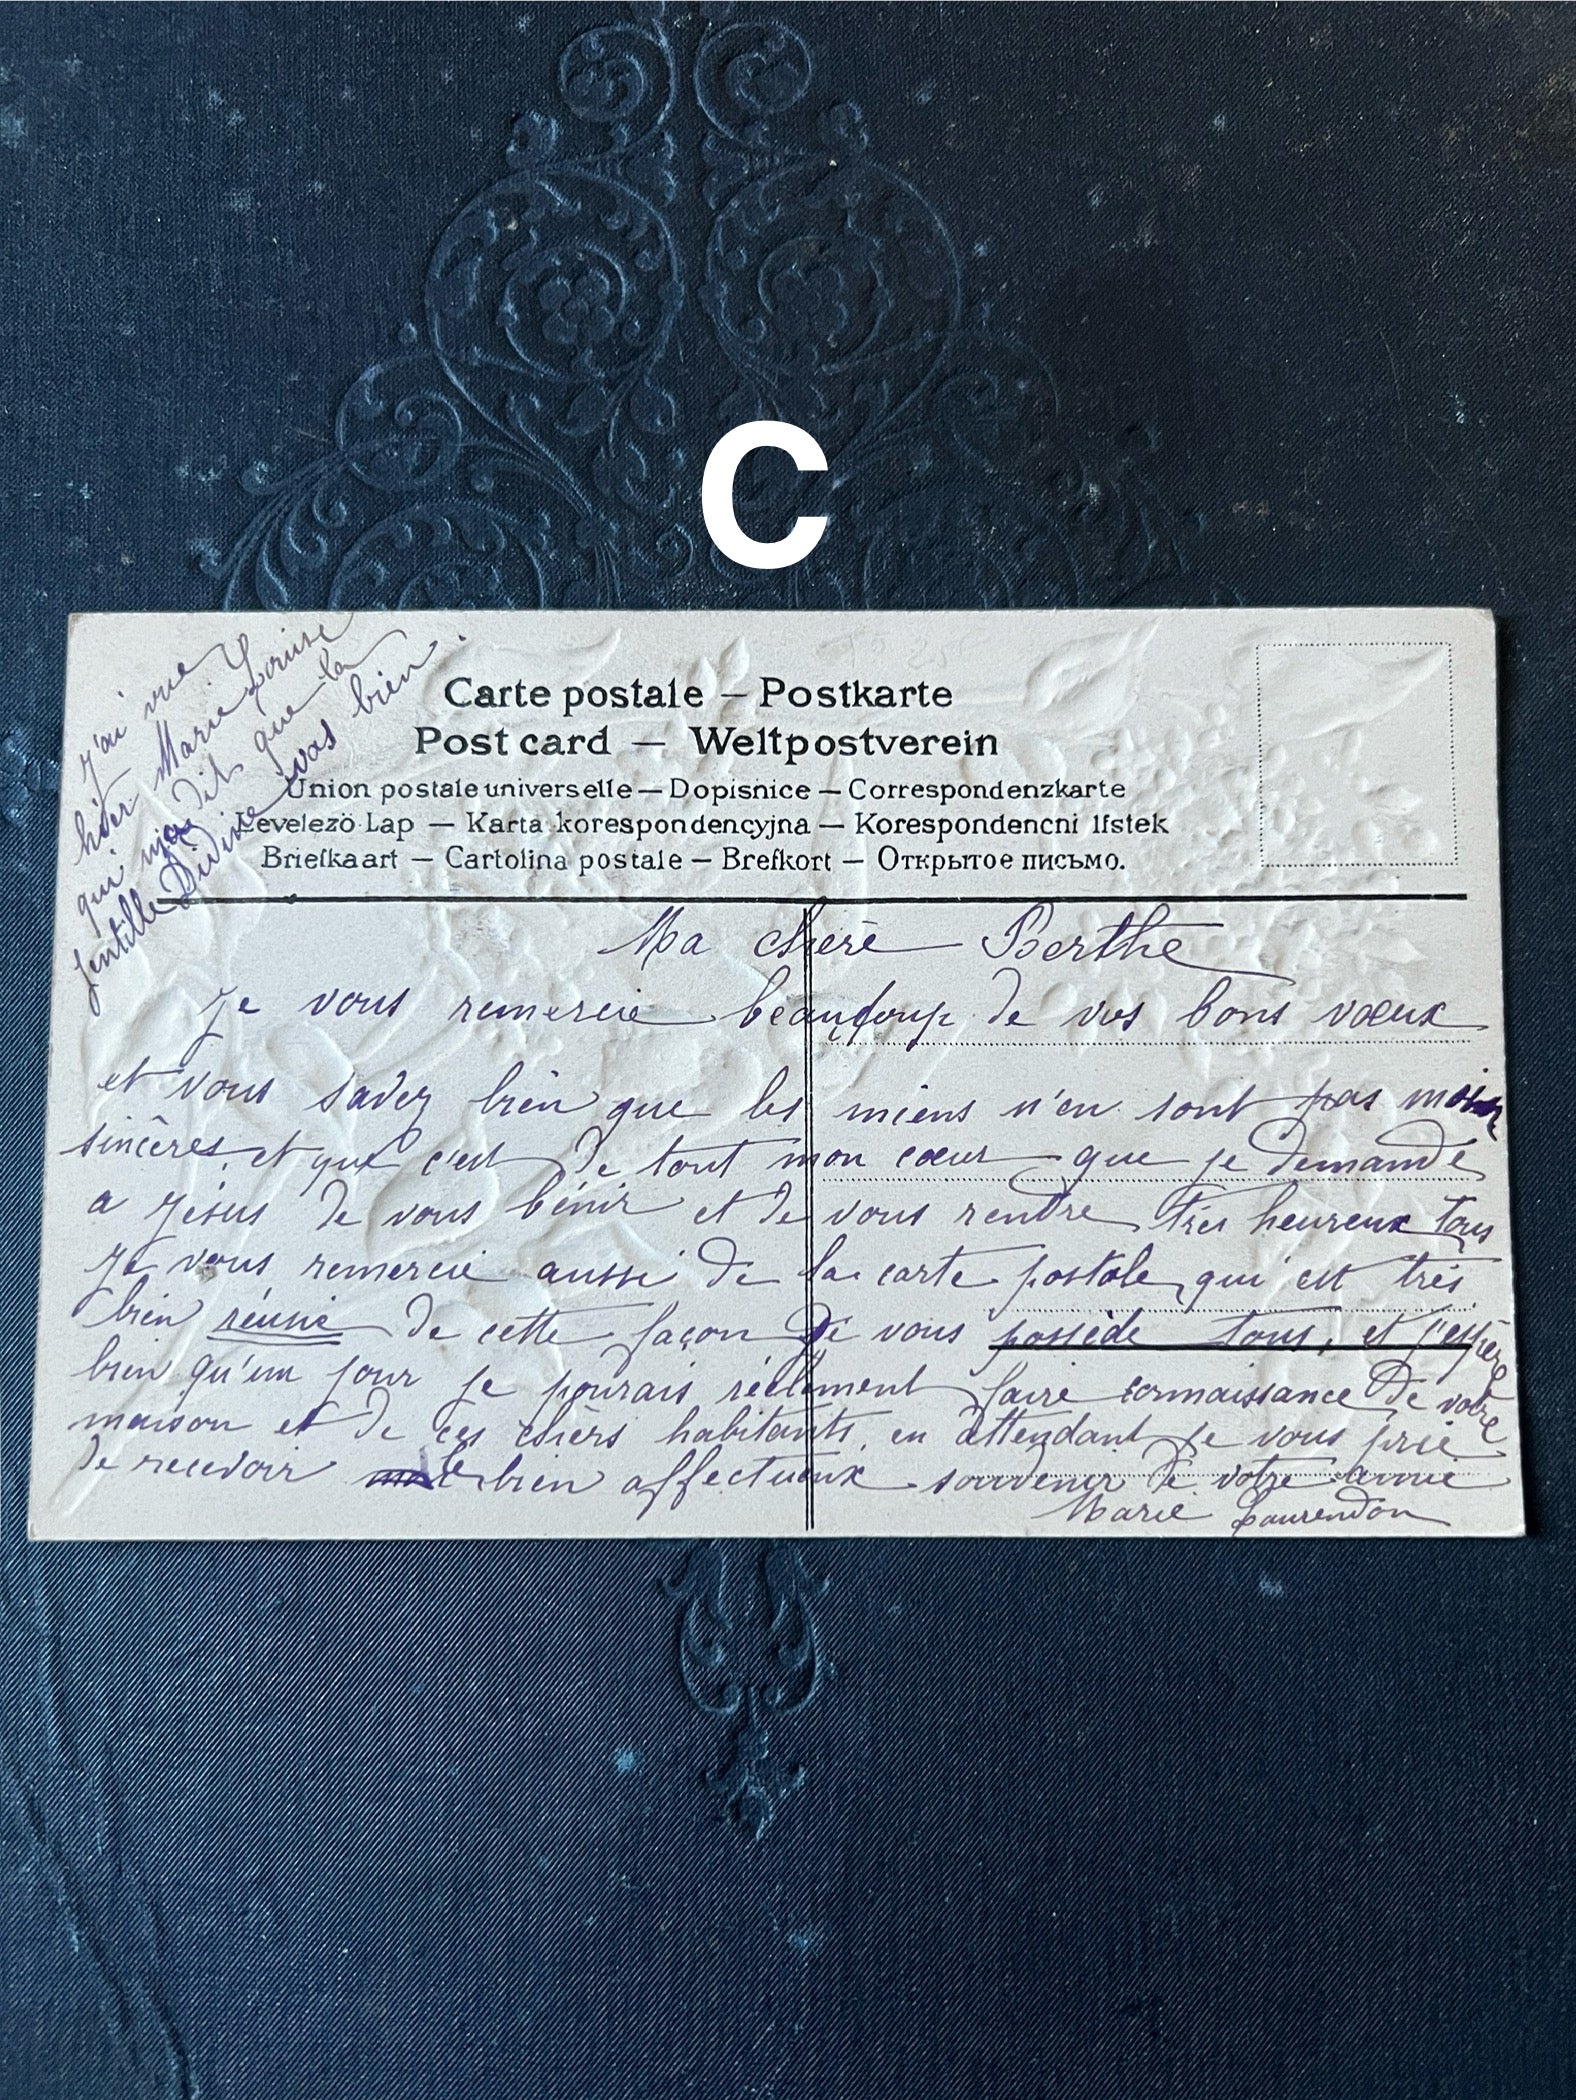 C
j'ai vue
hier Marie Louise
qui m'a dit que la
gentille Didine vas bien.
Carte postale – Postkarte
Post card — Weltpostverein
Union postale universelle — Dopisnice — Correspondenzkarte
Levelezö-Lap — Karta korespondencyjna — Korespondencni lfstek
Briefkaart — Cartolina postale — Brefkort — Открытое письмо.
Ma chère Berthe
Je vous remercie beaucoup de vos bons vœux
et vous savez bien que les miens n'en sont pas moins
sincères, et que c'est de tout mon cœur que je demande
a Jésus de vous bénir et de vous rendre très heureux tous
Je vous remercie aussi de la carte postale qui est très
bien réussie de cette façon je vous possède tous, et j'espère
bien qu'un jour je pourais réellement faire connaissance de votre
maison et de ces chers habitants, en attendant je vous prie
de recevoir le bien affectueux souvenir de votre amie
Marie Laurendon